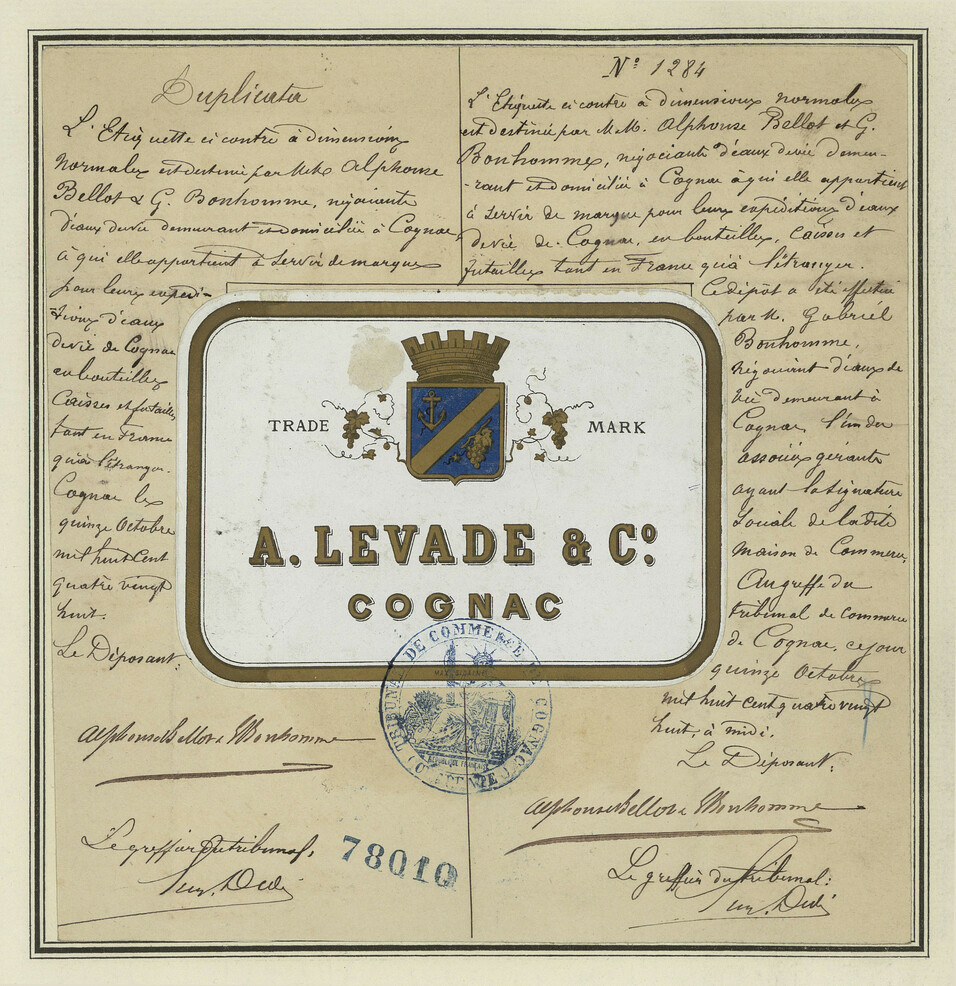 Duplicata
L'Etiquette ci contre à dimensions
normales est destinée par M.M. Alphonse
Bellot & G. Bonhomme, négociants
d'eaux de vie demeurant et domiciliés à Cognac,
à qui elle appartient à servir de marque
pour leurs expédi-
tions d'eaux
de vie de Cognac
en bouteilles
Caisses et futailles
tant en France
qu'à l'étranger.
Cognac le
quinze Octobre
mil huit cent
quatre vingt
huit.
Le Déposant:
Alphonse Bellot & G Bonhomme
Le greffier du tribunal,
78010
N° 1284
L'Etiquette ci contre à dimensions normales
est destinée par M.M. Alphonse Bellot et G.
Bonhomme, négociants d'eaux de vie demeu-
-rant et domiciliés à Cognac à qui elle appartient
à servir de marque pour leurs expéditions d'eaux
de vie de Cognac, en bouteilles, caisses et
futailles tant en France qu'à l'étranger.
Ce dépôt a été effectué
par M. Gabriel
Bonhomme,
négociant d'eaux de
vie demeurant à
Cognac, l'un des
associés gérants
ayant la signature
sociale de la dite
maison de Commerce,
Au greffe du
tribunal de commerce
de Cognac, ce jour
quinze Octobre
mil huit cent quatre vingt
huit, à midi.
Le Déposant:
Alphonse Bellot & G Bonhomme
Le greffier du tribunal:
TRADE MARK
A. LEVADE & Co.
COGNAC
TRIBUNAL DE COMMERCE DE COGNAC
(CHARENTE)
RÉPUBLIQUE FRANÇAISE